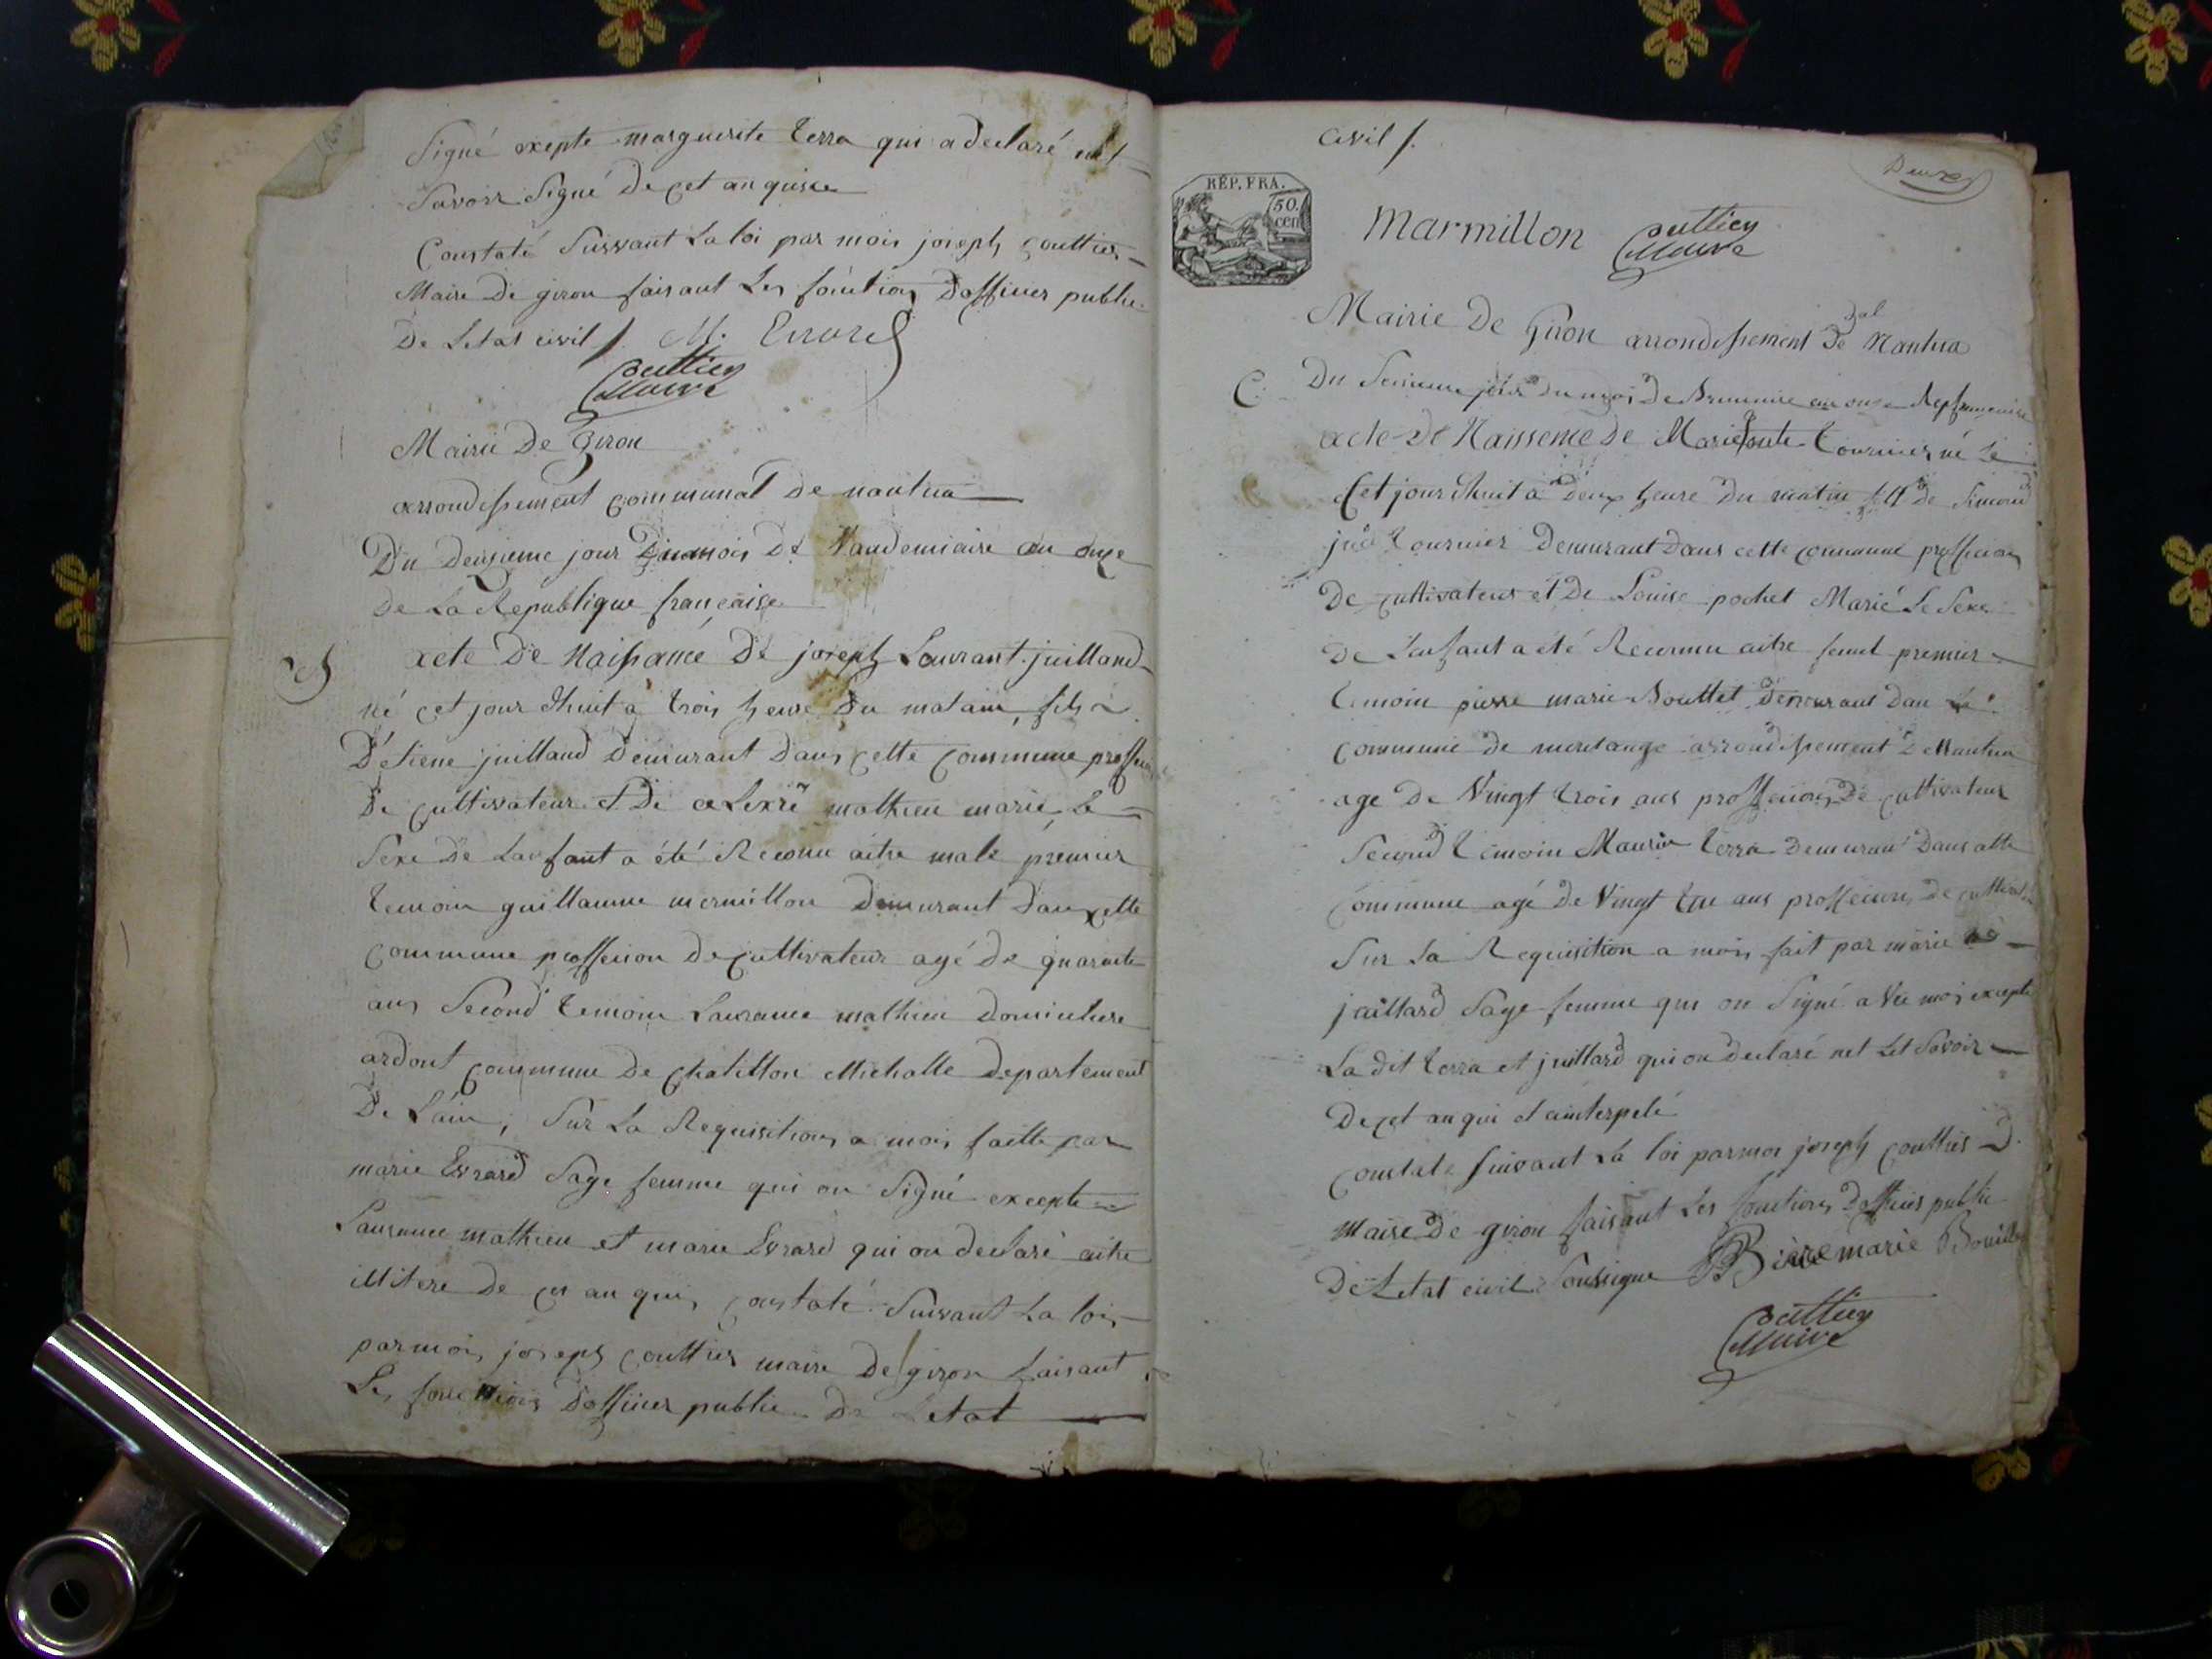 Signé exepte marguerite terra qui a declaré
Savoir Signé de cet an quise
Constaté Suivant La loi par mois joseph Couttier
Maire De giron faisant Les fonction D'officier public
De Letat civil M. Evrard
Couttier
Maire
Mairie De Giron
arrondissement communal De nantua
Du Deusieme jour Du mois De Vandemiaire an onze
De La Republique française
acte De Naissance De joseph Laurant juilland
né cet jour dhuit à trois heure Du matain, fils
D'Etiene juilland Demurant Dans cette Commune
De cultivateur et De mathieu marié Le
Sexe De Lanfant a été Reconu aitre male premier
temoin guillaume mermillon Demurant Dans cette
Commune proffesion De cultivateur agé De quarante
ans Second temoin Laurance mathieu
ardont Commune De Chatillon Michalle Departement
De L'ain, Sur La Requisition a mois faitte par
marie Evrard Sage femme qui on Signé excepte
Laurance mathieu et marie Evrard qui on declaré aitre
De ce an quis constaté Suivant La loi
par mois joseph Couttier maire De giron faisant
Les fonctions D'officier public De Letat
Civil
Deux
RÉP. FRA.
50.
cen
Marmillon Couttier
Maire
Mairie De Giron arrondissement De Nantua
Du jour du mois De Brumaire an onze Rep francaise
C.
acte De Naissence De Marie Tournier né Le
Cet jour dhuit à Deux heure Du matin fill De Simond
Tournier Demurant Dans cette commune proffesion
De cultivateur et De Louise pochet Marié Le Sexe
De Lenfant a été Reconnu aitre femel premier
temoin pierre marie Bouttet Demurant Dan
Commune De arrondissement De Nantua
age De Vingt trois ans proffesions De cultivateur
Second temoin terra Demurant Dans cette
Commune agé De Vingt ans proffesions De
Sur La Requisition a mois fait par marie
juillard Sage femme qui on Signé avec mois excepte
La dit terra et juillard qui on Declaré net Let Savoir
De cet an qui et aintespelé
Constate Suivant La loi par moi joseph Couttier
Maire De giron faisant Les fonctions D'officier public
De Letat civil Soussigne Pierre marie
Couttier
Maire